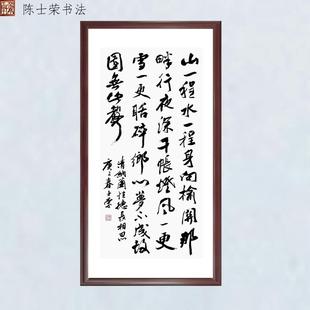 陈士荣书法
山一程水一程身向榆关那
畔行夜深千帐灯风一更
雪一更聒碎乡心梦不成故
园无此声
清纳兰性德长相思